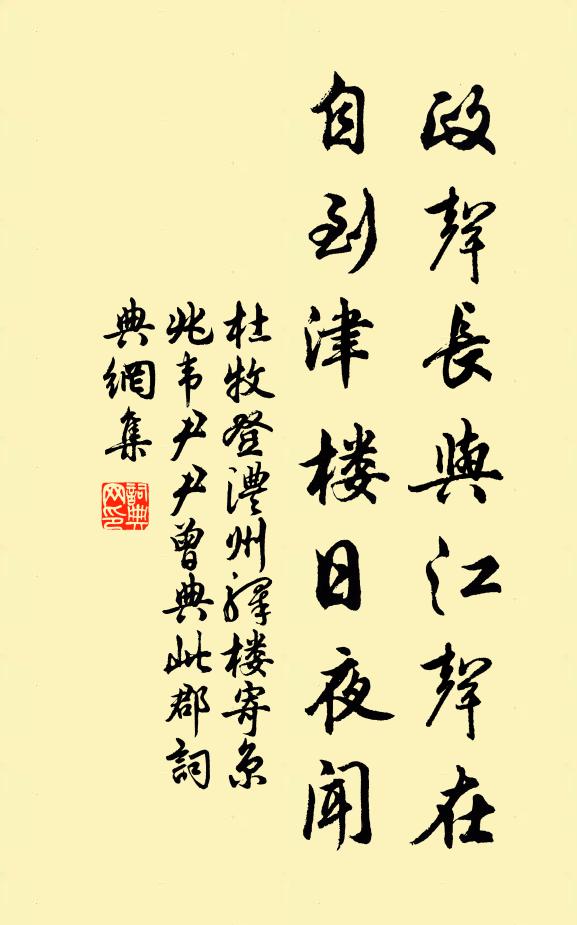 政聲長與江聲在
自到津楼日夜聞
杜牧登澧州驛楼寄京
兆韦尹尹曾典此郡詞
典網集
詞典网印